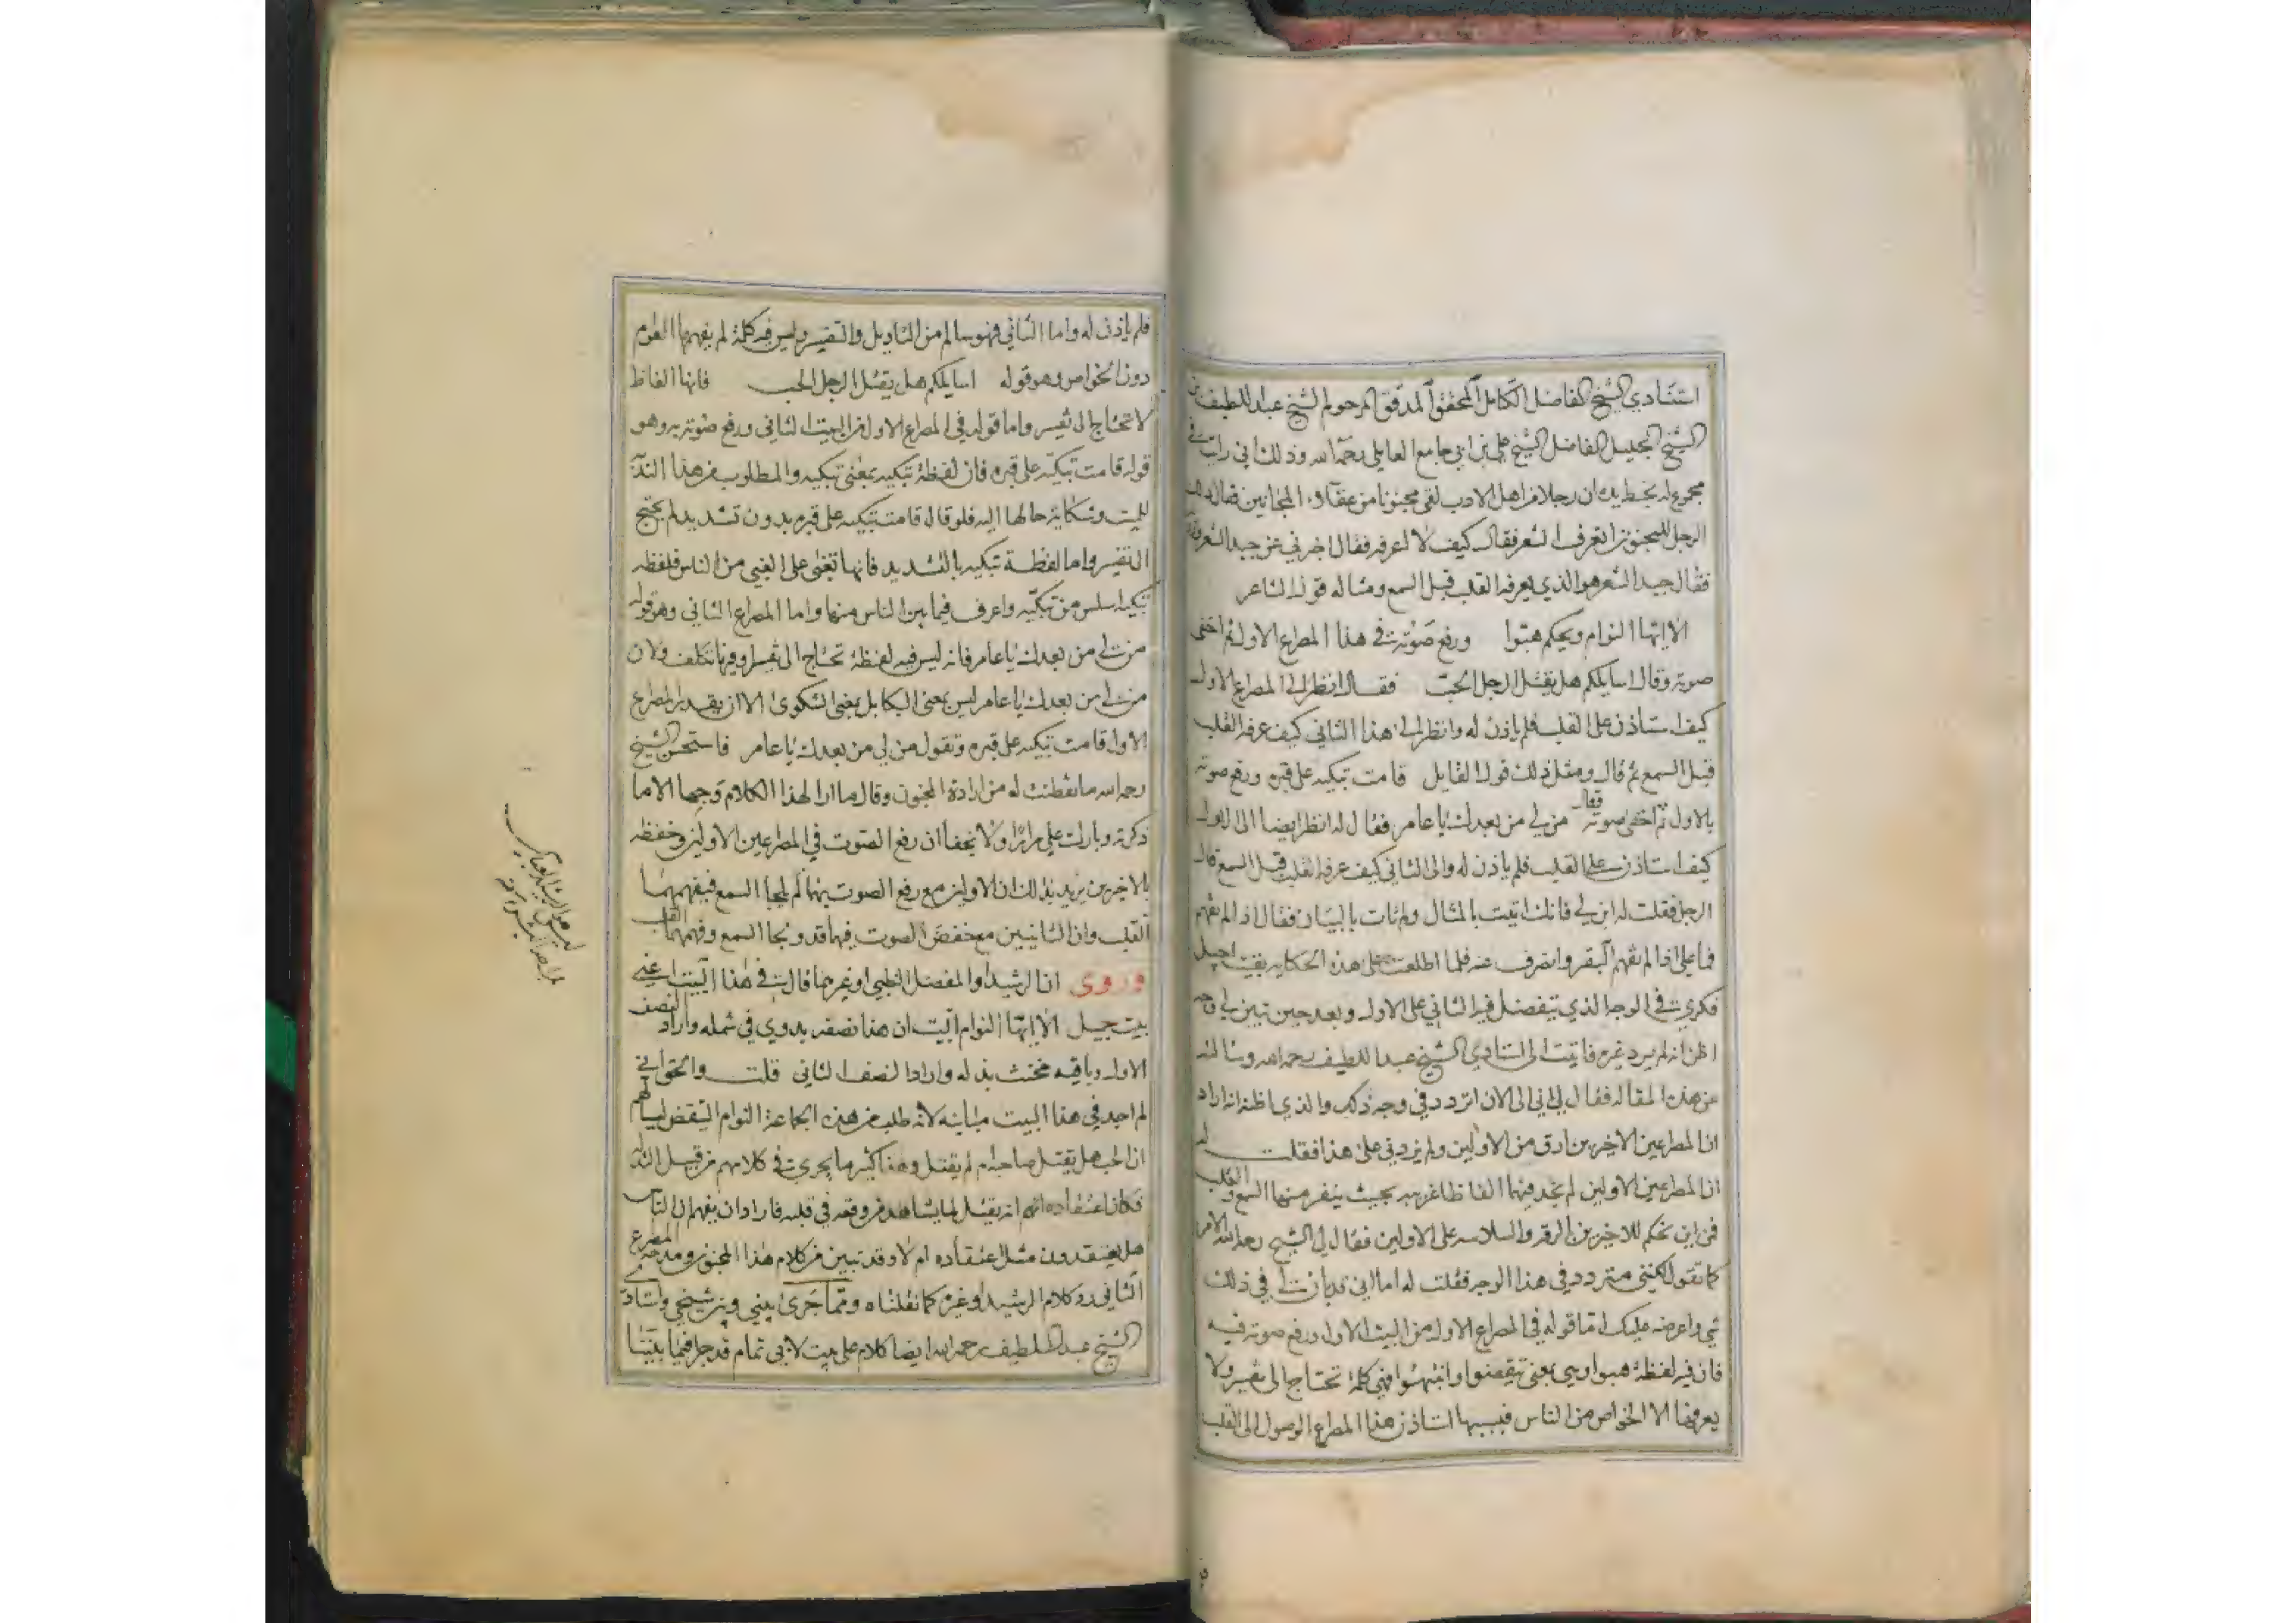 استنادي الشيخ الفاضل الكامل المحقق المدقق المرحوم الشيخ عبد اللطيف بن
الشيخ الجليل الفاضل الشيخ علي بن ابي جامع العاملي رحمه الله وذلك اني رايت في
مجموع له بخط يده ان رجلا من اهل الادب لقي مجنونا من عقلاء المجانين فقال له
الرجل للمجنون اتعرف الشعر فقال كيف لا اعرفه فقال اخبرني عن جيد الشعر
فقال جيد الشعر هو الذي يعرفه القلب قبل السمع ومثاله قول الشاعر
الا ايها النوام ويحكم هبوا ورفع صوته في هذا المصراع الاول ثم اخفى
صوته وقال اسايلكم هل يقتل الرجل الحب فقال انظر الى المصراع الاول
كيف استاذن على القلب فلم ياذن له وانظر الى هذا الثاني كيف عرفه القلب
قبل السمع ثم قال ومثل ذلك قول القايل قامت تبكيه على قبره ورفع صوته
بالاول ثم اخفى صوته فقال من لي من بعدك يا عامر فقال له انظر ايضا الى الاول
كيف استاذن على القلب فلم ياذن له والى الثاني كيف عرفه القلب قبل السمع قال
الرجل فقلت له ابن لي فانك اتيت بالمثال ولم تات بالبيان فقال اذا لم تفهم
فما علي اذا لم تفهم البقر وانصرف عنه فلما اطلعت على هذه الحكاية بقيت اجيل
فكري في الوجه الذي يتفضل فيه الثاني على الاول وبعد حين تبين لي وجه
اظن انه لم يرد غيره فاتيت الى استادي الشيخ عبد اللطيف رحمه الله وسالته
عن هذه المقاله فقال لي اني الى الان اتردد في وجه ذلك والذي اظنه انه اراد
ان المصرعين الاخيرين ارق من الاولين ولم يزدني على هذا فقلت له
ان المصرعين الاولين لم نجد فيهما الفاظا غريبه بحيث ينفر منها السمع والقلب
فمن اين نحكم للاخيرين بالرقة والسلاسه على الاولين فقال لي الشيخ رحمه الله الامر
كما تقول لكنني متردد في هذا الوجه فقلت له اما اني قد بان لي في ذلك
شي واعرضه عليك اما قوله في المصراع الاول من البيت الاول ورفع صوته فيه
فان فيه لفظة هبوا وهي بمعنى تيقضوا وانتبهوا فهي كلمة تحتاج الى تفسير ولا
يعرفها الا الخواص من الناس فبسببها استاذن هذا المصراع الوصول الى القلب
فلم ياذن له واما الثاني فهو سالم من التاويل والتفسير وليس فيه كلمة لم يفهمها العوام
دون الخواص وهو قوله اسايلكم هل يقتل الرجل الحب فانها الفاظ
لا تحتاج الى تفسير واما قوله في المصراع الاول من البيت الثاني ورفع صوته به وهو
قوله قامت تبكيه على قبره فان لفظة تبكيه بمعنى تبكيه والمطلوب من هذا الندآء
للميت وشكاية حالها اليه فلو قال قامت تبكيه على قبره بدون تشديد لم يحتج
الى تفسير واما لفظة تبكيه بالتشديد فانها تخفى على الغبي من الناس فلفظه
تبكيه اسلس من تبكيه واعرف فيما بين الناس منها واما المصراع الثاني وهو قوله
من لي من بعدك يا عامر فانه ليس فيه لفظة تحتاج الى تفسير وفيها تكلف ولان
من لي من بعدك يا عامر ليس بمعنى البكا بل بمعنى الشكوى الا ان يقدر المصراع
الاول قامت تبكيه على قبره وتقول من لي من بعدك يا عامر فاستحسن الشيخ
رحمه الله ما تفطنت له من ارادة المجنون وقال ما ارا لهذا الكلام وجها الا ما
ذكرته وبارك علي مرارا ولا يخفا ان رفع الصوت في المصرعين الاولين وخفظه
بالاخيرين يريد بذلك ان الاولين مع رفع الصوت بهما لم يلجا السمع فيفهمهما
القلب وان الثانيين مع خفض الصوت فيهما قد ولجا السمع وفهمهما القلب
وروى ان الرشيد او المفضل الظبي او غيرهما قال في هذا البيت اعني
بيت جميل الا ايها النوام البيت ان هذا نصفه بدوي في شمله واراد النصف
الاول وباقيه مخنث بذله واراد النصف الثاني قلت والحق اني
لم اجد في هذا البيت مباينه لانه طلب من هذه الجماعة النوام التيقض ليسالهم
ان الحب هل يقتل صاحبه ام لم يقتل وهذا كثير ما يجري في كلامهم من قبيل التذلل
فكان اعتقاده انه يقتل لما يشاهد من وقعه في قلبه فاراد ان يفهم ان الناس
هل يعتقدون مثل اعتقاده ام لا وقد تبين من كلام هذا المجنون ومدحه المصرع
الثاني رد كلام الرشيد او غيره كما نقلناه ومما جرى بيني وبين شيخي واستادي
الشيخ عبد اللطيف رحمه الله ايضا كلام على بيت لابي تمام قد جرا فيما بيننا